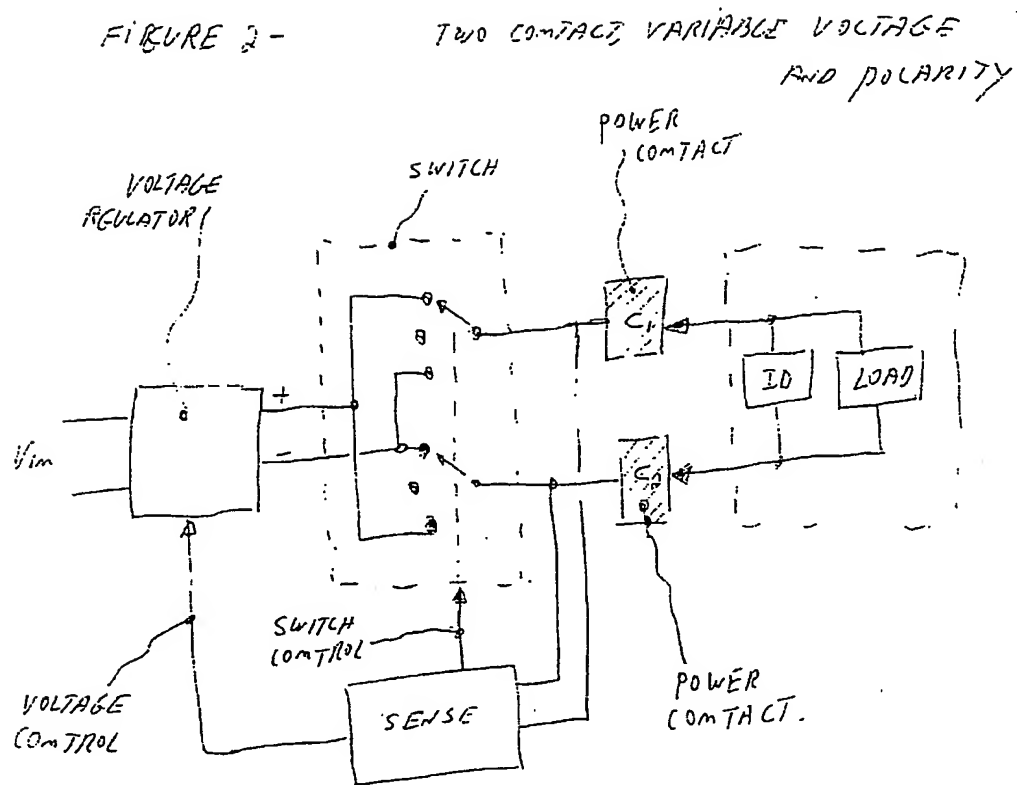 FIGURE 2- TWO CONTACT, VARIABLE VOLTAGE
AND POLARITY
POWER
CONTACT
SWITCH
VOLTAGE
REGULATOR
C1
ID
LOAD
+
Vin
-
C2
SWITCH
CONTROL
VOLTAGE
CONTROL
SENSE
POWER
CONTACT.